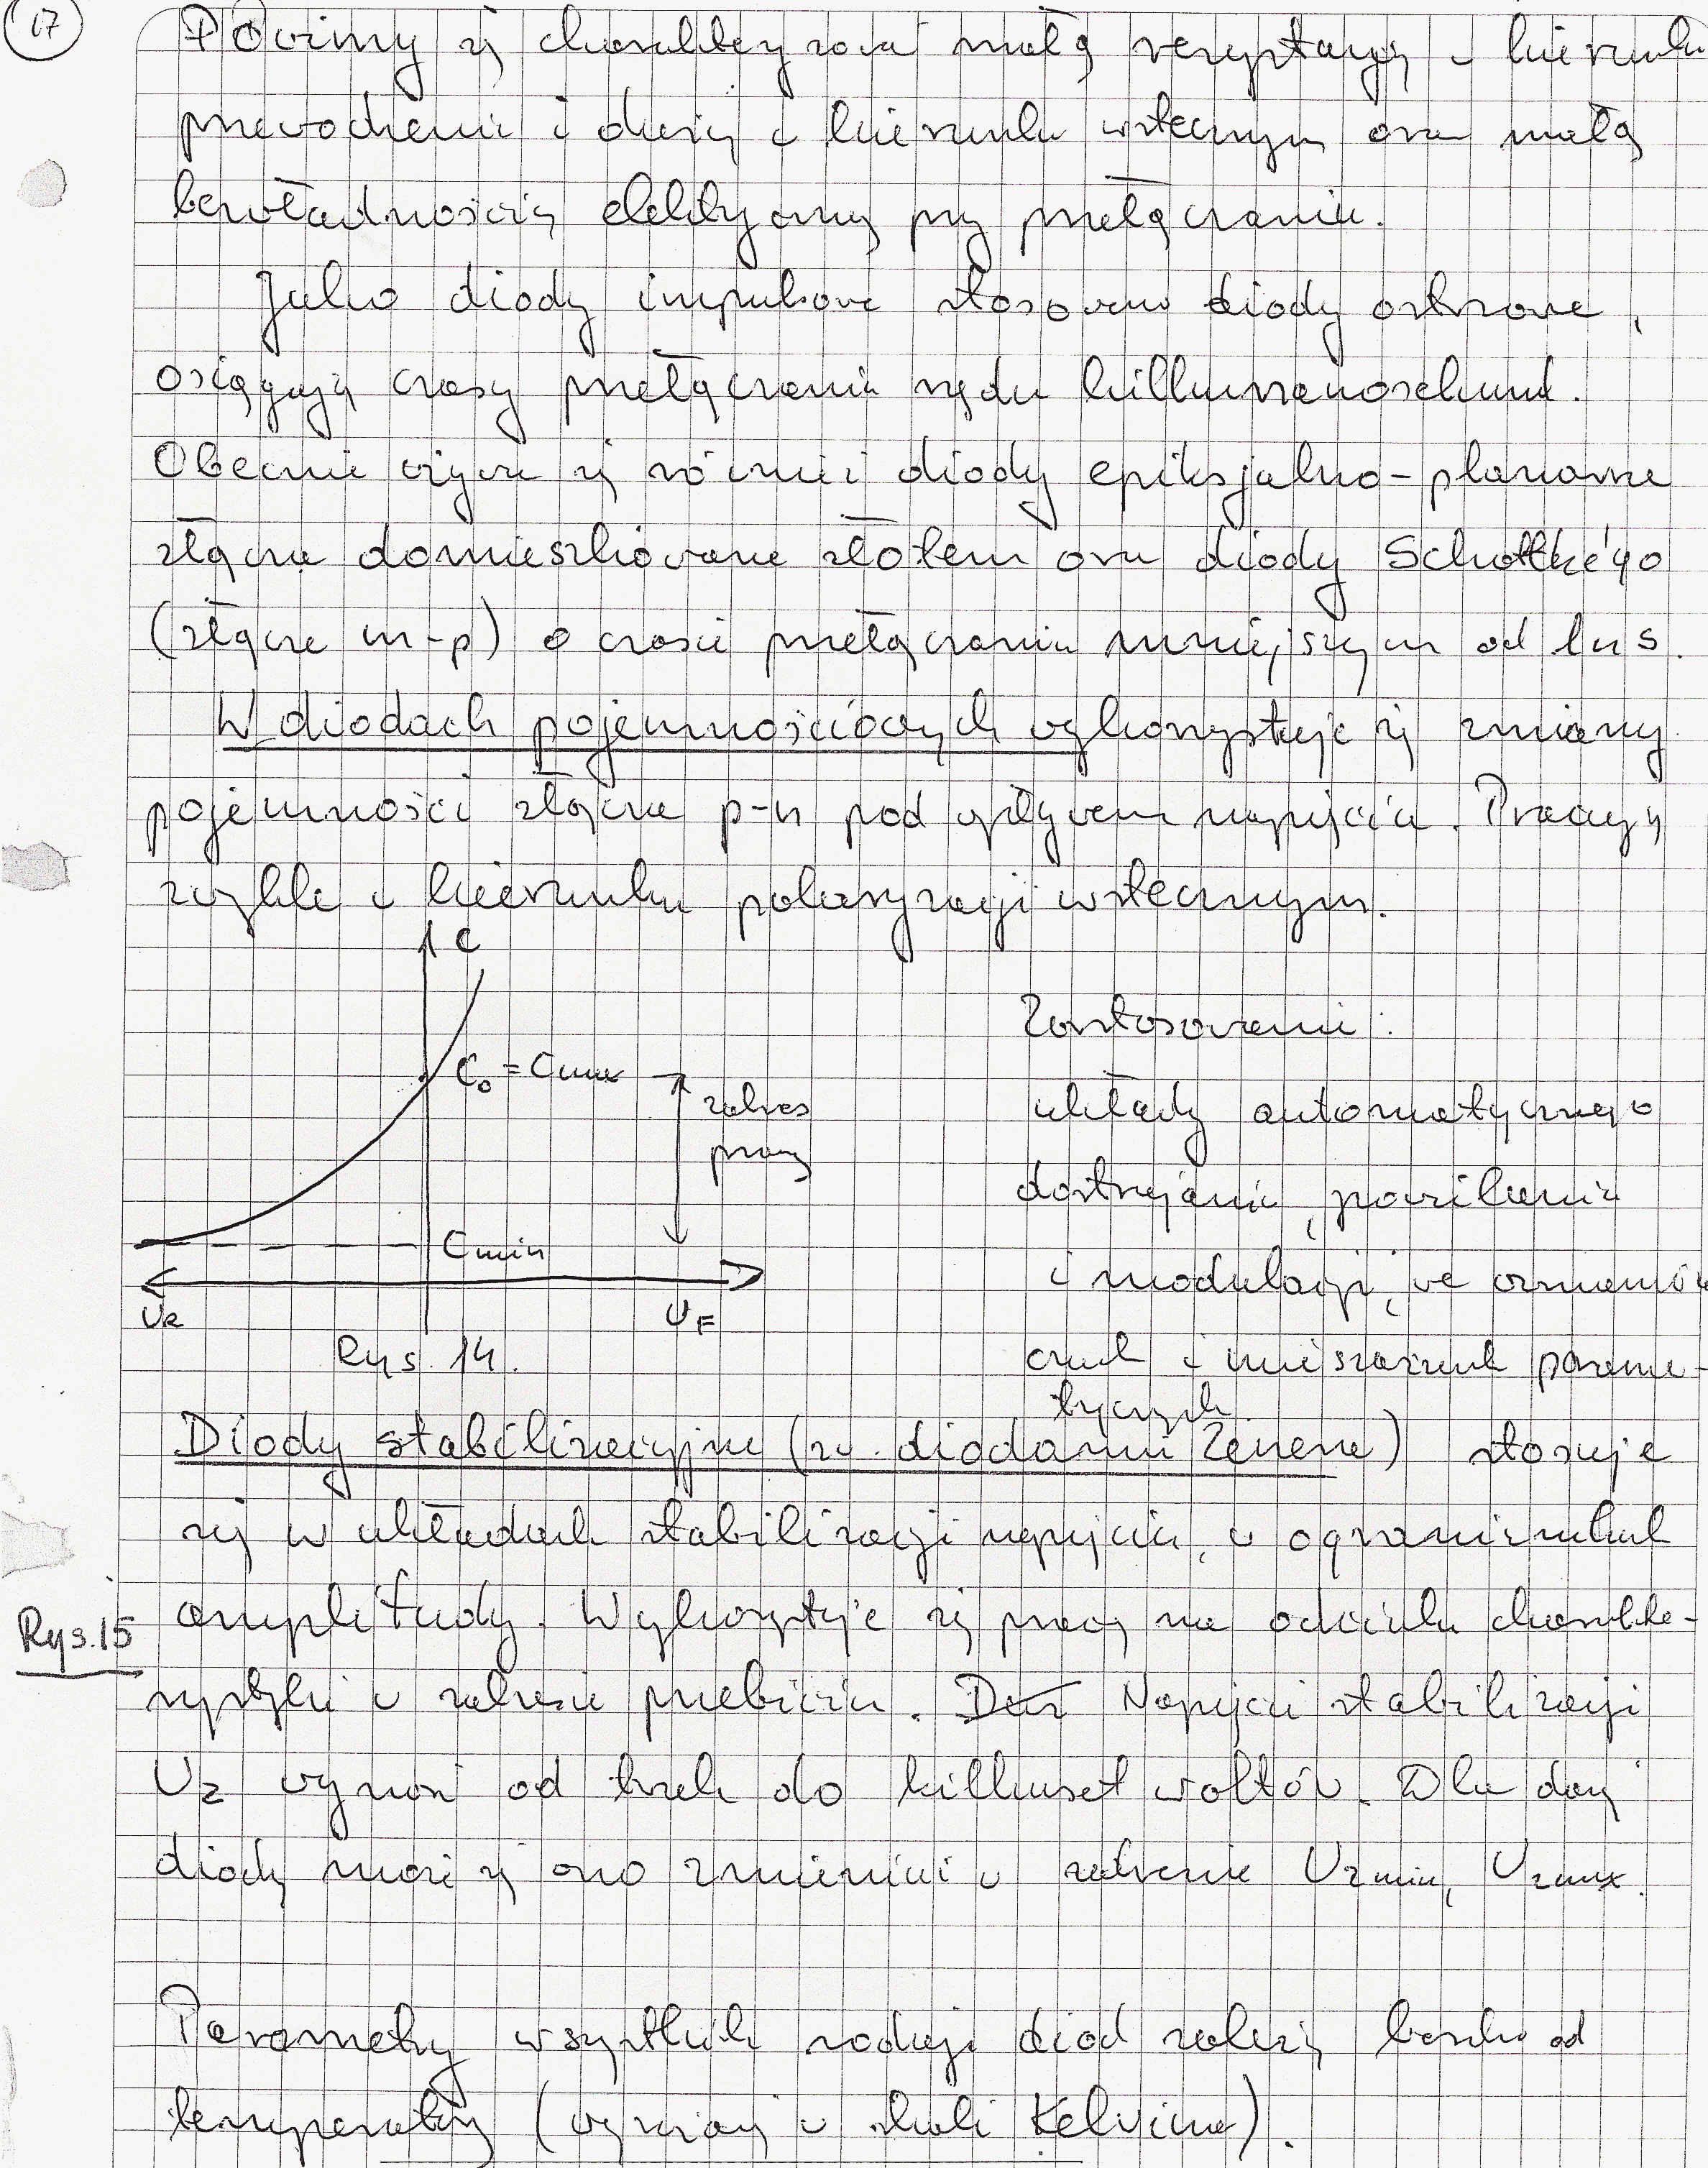 17
Powinny się charakteryzować małą rezystancją w kierunku
przewodzenia i dużą w kierunku wstecznym oraz małą
bezwładnością elektryczną przy przełączaniu.
Jako diody impulsowe stosowano diody ostrzowe,
osiągają czasy przełączania rzędu kilkunanosekund.
Obecnie używa się również diody epiksjalno-planarne
złącza domieszkowane złotem oraz diody Schottke'go
(złącze m-p) o czasie przełączania mniejszym od 1ns.
W diodach pojemnościowych wykorzystuje się zmiany
pojemności złącza p-n pod wpływem napięcia. Pracują
zwykle w kierunku polaryzacji wstecznym.
C
Zastosowanie:
C₀ = Cmax
zakres
układy automatycznego
pracy
dostrajania, powielania
Cmin
i modulacji, we wzmacnia
UR UF
czach i mieszaczach parame-
Rys. 14.
trycznych.
Diody stabilizacyjne (zw. diodami Zenera) stosuje
się w układach stabilizacji napięcia, w ogranicznikach
amplitudy. Wykorzystuje się pracę na odcinku charakte-
Rys.15
rystyki w zakresie przebicia. Napięcie stabilizacji
Uz wynosi od trzech do kilkuset woltów. Dla danej
diody może się ono zmieniać w zakresie Uzmin, Uzmax.
Parametry wszystkich rodzaji diod zależą bardzo od
temperatury (wyrażanej w skali Kelvina).